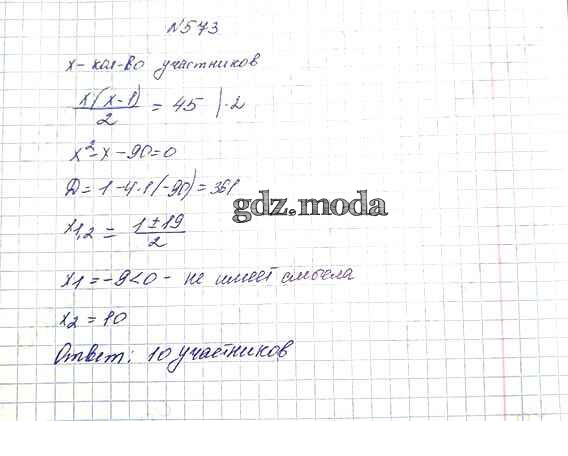 №573
x - кол-во участников
x(x-1)/2 = 45 |·2
x²-x-90=0
D=1-4·1(-90)=361
gdz.moda
x1,2 = 1±19/2
x1=-9<0 - не имеет смысла
x2=10
Ответ: 10 участников